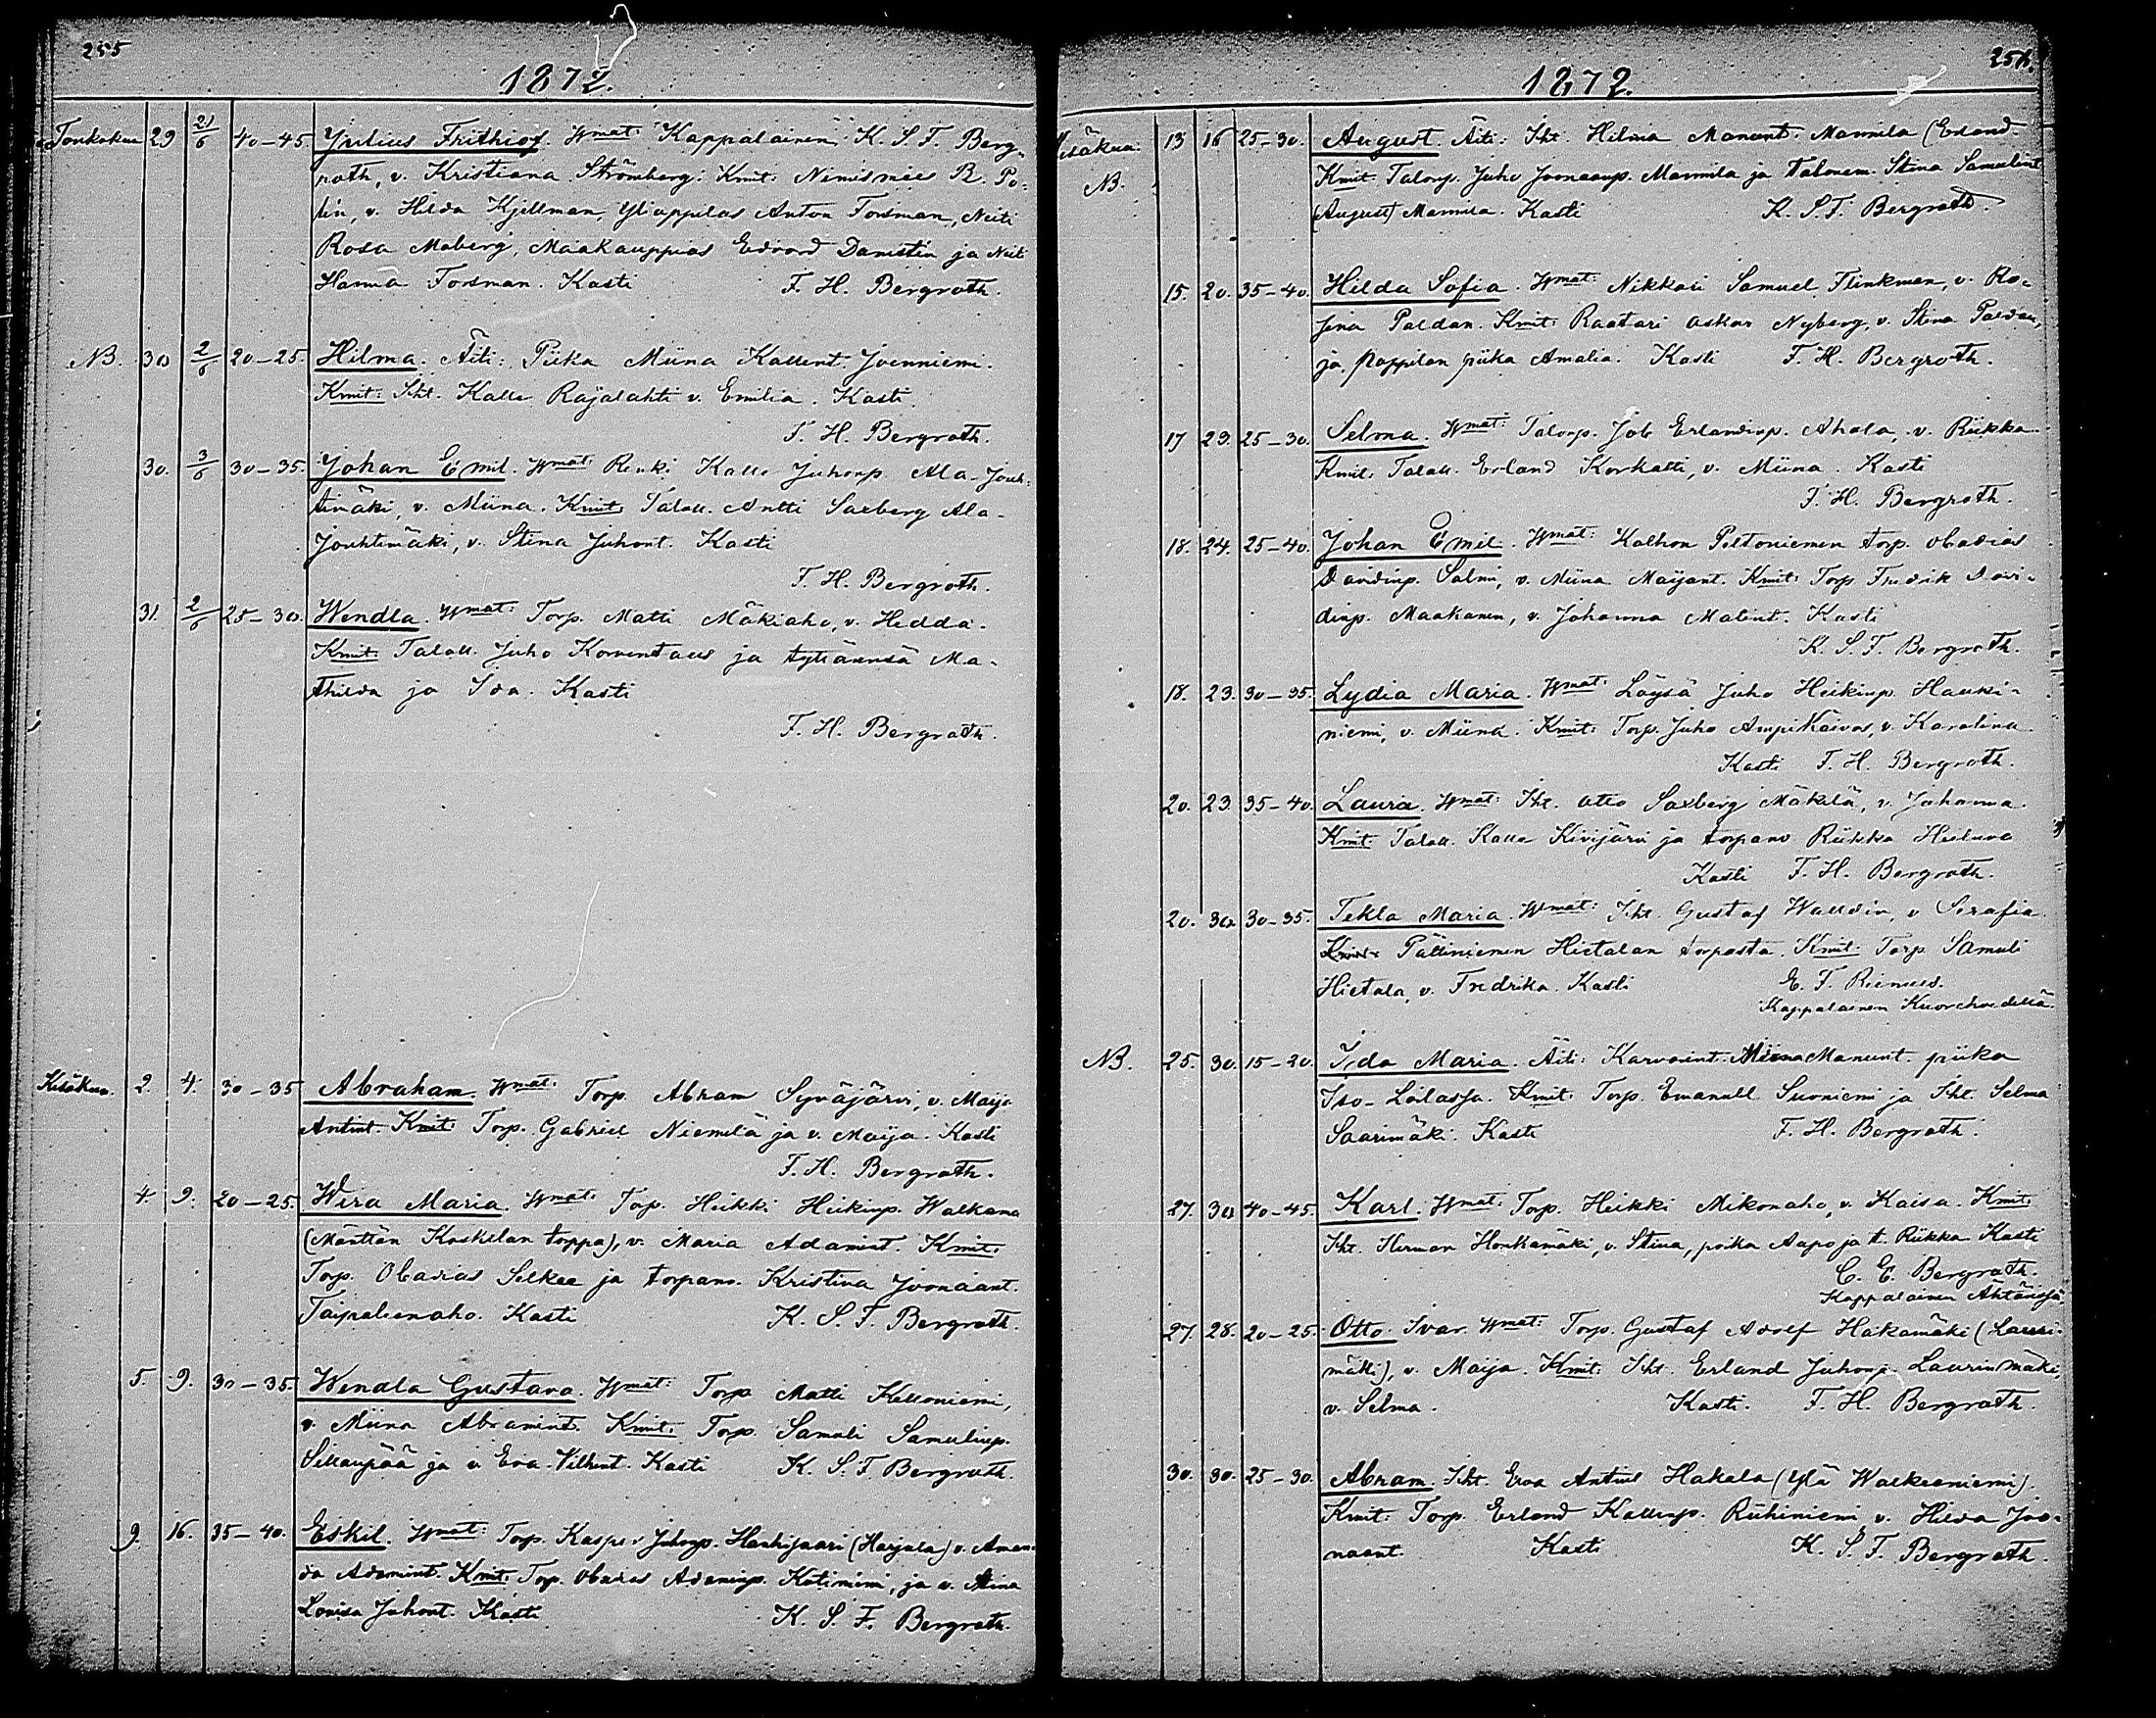 255
1872.
Toukokuu 29 21/6 40-45. Julius Frithiof. Wmat: Kappalainen K. S. F. Berg-
roth, v. Kristiana Strömberg. Kmit: Nimismies R. Po-
lin, v. Hilda Kjellman, Ylioppilas Anton Forsman, Neiti
Rosa Moberg, Maakauppias Edvard Danistén ja Neiti
Hanna Forsman. Kasti F. H. Bergroth.
NB. 30 2/6 20-25. Hilma. Äiti: Piika Miina Kallent. Joenniemi.
Kmit: Iht. Kalle Rajalahti v. Emilia. Kasti
F. H. Bergroth.
30. 3/6 30-35. Johan Emil. Wmat: Renki Kalle Juhonp. Ala-Jouh-
timäki, v. Miina. Kmit: Talall. Antti Saxberg Ala-
Jouhtimäki, v. Stina Juhont. Kasti
F. H. Bergroth.
31. 2/6 25-30. Wendla. Wmat: Torp. Matti Mäkiaho, v. Hedda.
Kmit: Talall. Juho Korventaus ja tyttärensä Ma-
thilda ja Ida. Kasti
F. H. Bergroth.
Kesäkuu. 2. 4. 30-35 Abraham. Wmat: Torp. Abram Syväjärvi, v. Maija
Antint. Kmit: Torp. Gabriel Niemelä ja v. Maija. Kasti
F. H. Bergroth.
4. 9. 20-25. Wera Maria. Wmat: Torp. Heikki Heikinp. Walkama
(Mänttän Koskelan torppa), v. Maria Adamint. Kmit:
Torp. Obadias Selkee ja torpanv. Kristina Joonaant.
Taipaleenaho. Kasti K. S. F. Bergroth.
5. 9. 30-35. Wendla Gustava. Wmat: Torp. Matti Kelloniemi,
v. Miina Abramint. Kmit: Torp. Samuli Samulinp.
Sillanpää ja v. Eva Vilhent. Kasti K. S. F. Bergroth.
9. 16. 35-40. Eskil. Wmat: Torp. Kasper Juhonp. Hanhijaari (Harjula) v. Aman-
da Adamint. Kmit: Torp. Obadias Adaminp. Kotiniemi, ja v. Stina
Lovisa Juhont. Kasti K. S. F. Bergroth.
256.
1872.
Kesäkuu. 13 16 25-30. August. Äiti: Iht. Hilma Manunt. Mannila (Erland
NB. Kmit: Talonp. Juho Joonaanp. Mannila ja Talonem. Stina Samulint
(August) Mannila. Kasti K. S. F. Bergroth.
15. 20. 35-40. Hilda Sofia. Wmat: Nikkari Samuel Flinkman, v. Ro-
sina Paldan. Kmit: Raatari Oskar Nyberg, v. Stina Paldan,
ja pappilan piika Amalia. Kasti F. H. Bergroth.
17 23. 25-30. Selma. Wmat: Talonp. Job Erlandinp. Ahola, v. Riikka.
Kmit: Talall. Erland Korkatti, v. Miina. Kasti
F. H. Bergroth.
18. 24. 25-40. Johan Emil. Wmat: Kalhon Peltoniemen torp. Obadias
Davidinp. Salmi, v. Miina Maijant. Kmit: Torp. Fredrik Davi-
dinp. Maakanen, v. Johanna Matint. Kasti
K. S. F. Bergroth.
18. 23. 30-35. Lydia Maria. Wmat: Löysä Juho Heikinp. Hauki-
niemi, v. Miina. Kmit: Torp. Juho Ampikaivos, v. Karolina.
Kasti F. H. Bergroth.
20. 23. 35-40. Lauria. Wmat: Iht. Otto Saxberg Mäkelä, v. Johanna.
Kmit: Talall. Kalle Kivijärvi ja torpanv. Riikka Heiluva
Kasti F. H. Bergroth.
20. 30. 30-35. Tekla Maria. Wmat: Iht. Gustaf Walldin, v. Serafia
Pälliniemen Hietalan torpasta. Kmit: Torp. Samuli
Hietala, v. Fredrika. Kasti E. F. Rinne.
Kappalainen Kuorehvedellä.
NB. 25. 30. 15-20. Ida Maria. Äiti: Miina Manunt. piika
Iso-Loilassa. Kmit: Torp. Emanuel Suoniemi ja Iht. Selma
Saarimäki. Kasti F. H. Bergroth.
27. 30. 40-45. Karl. Wmat: Torp. Heikki Mikonaho, v. Kaisa. Kmit:
Iht. Herman Honkamäki, v. Stina, poika Aapo ja t. Riikka Kasti
C. E. Bergroth.
Kappalainen Ähtärissä.
27. 28. 20-25. Otto Ivar. Wmat: Torp. Gustaf Adolf Hakamäki (Lauri-
mäki), v. Maija. Kmit: Iht. Erland Juhonp. Laurinmäki,
v. Selma. Kasti. F. H. Bergroth.
30. 30. 25-30. Abram. Iht. Eeva Antint. Hakala (Ylä Walkeeniemi).
Kmit: Torp. Erland Kallenp. Riihiniemi v. Hilda Joo-
naant. Kasti K. S. F. Bergroth.